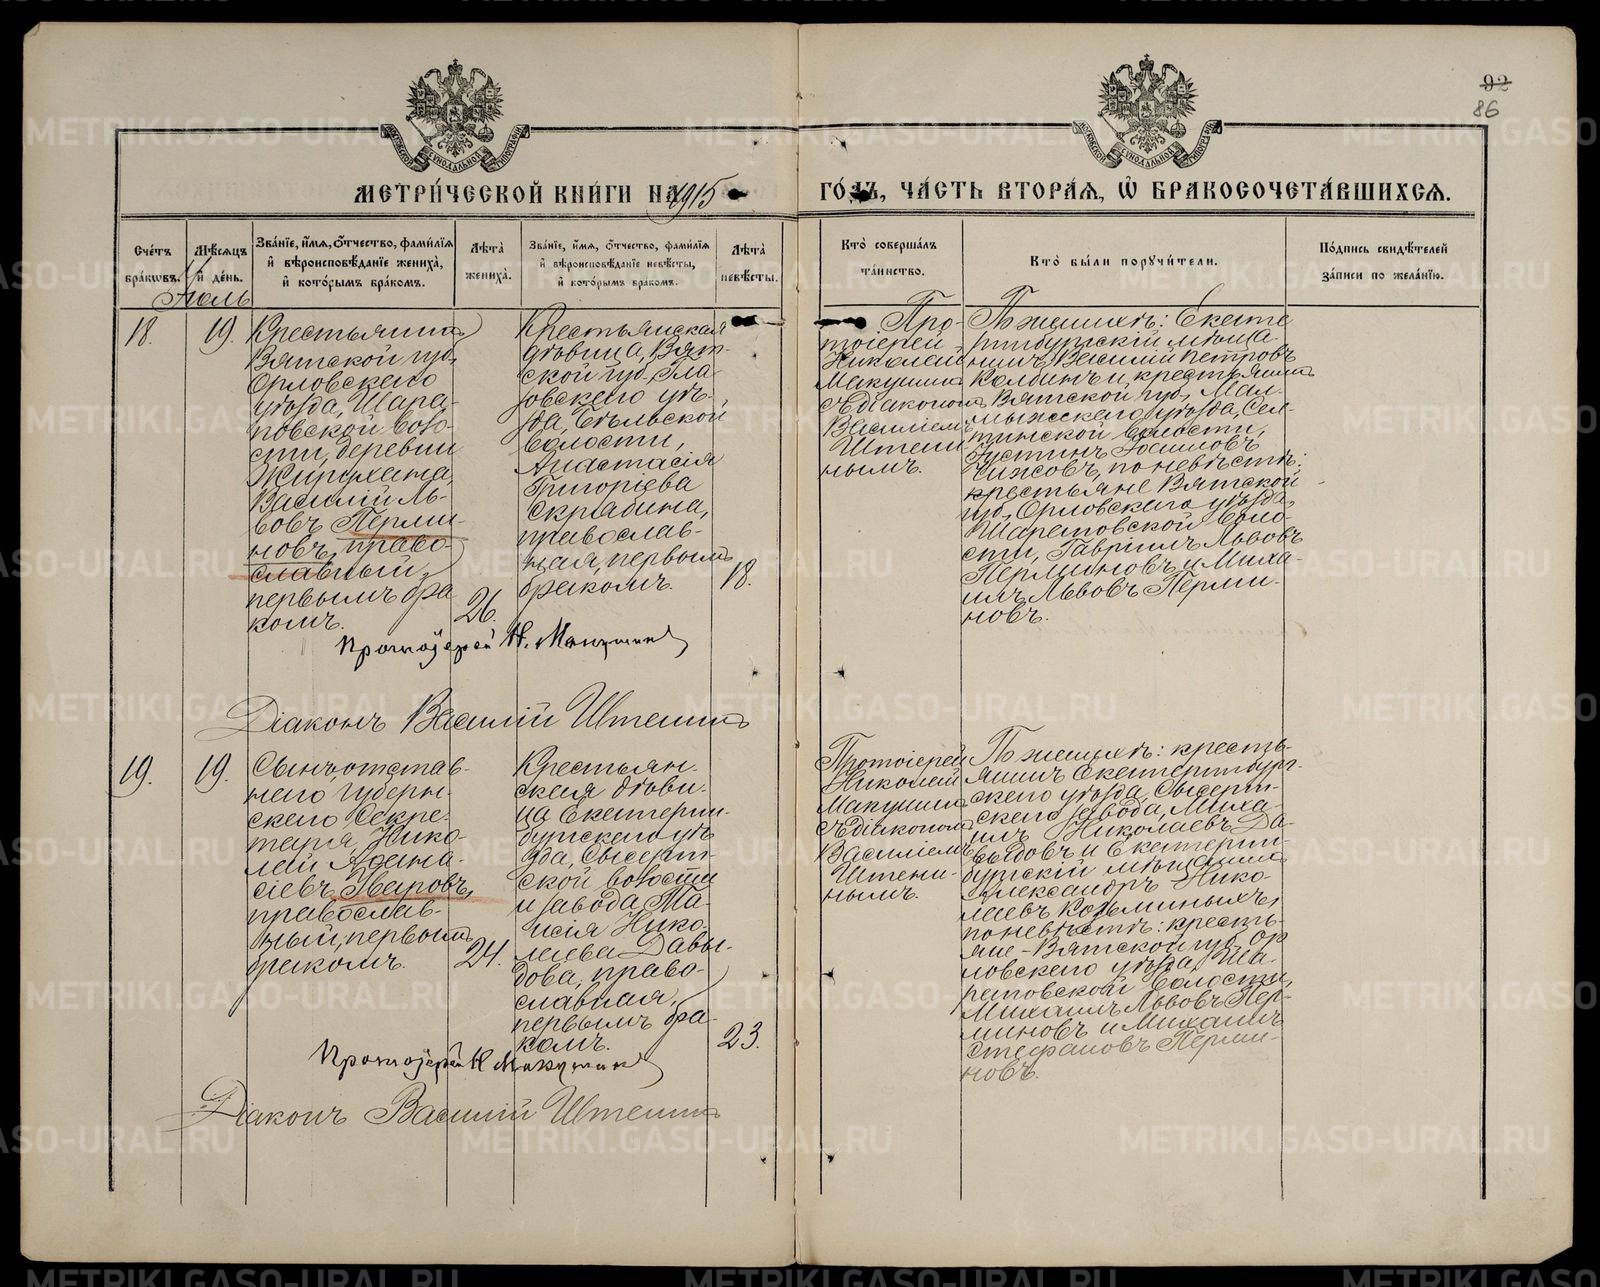 92
86
МЕТРИ́ЧЕСКОЙ КНИ́ГИ НА 1915 ГО́ДЪ, ЧА́СТЬ ВТОРА́Я, Ѡ БРАКОСОЧЕТА́ВШИХСЯ.
Сче́тъ бра́ковъ.
Мѣ́сяцъ и҆ день.
Зва́нїе, и҆́мя, ѻ҆́тчество, фами́лїя и҆ вѣроисповѣ́данїе жениха̀, и҆ кото́рымъ бра́комъ.
Лѣта̀ жениха̀.
Зва́нїе, и҆́мя, ѻ҆́тчество, фами́лїя и҆ вѣроисповѣ́данїе невѣ́сты, и҆ кото́рымъ бра́комъ.
Лѣта̀ невѣ́сты.
Кто̀ соверша́лъ та́инство.
Кто̀ бы́ли поручи́тели.
По́дпись свидѣ́телей за́писи по жела́нїю.
Іюль
18.
19.
Крестьянинъ
Вятской губ.,
Орловскаго
уѣзда, Шара-
повской воло-
сти, деревни
Василій Ль-
вовъ Перми-
новъ, право-
славный,
первымъ бра
комъ.
26.
Крестьянская
дѣвица, Вят-
ской губ., Гла
зовскаго уѣз-
да, Бѣльской
волости,
Анастасія
Григоріева
Скрябина,
православ-
ная, первымъ
бракомъ.
18.
Про-
тоіерей
Николай
Макушинъ
съ діакономъ
Василіемъ
Штени
нымъ.
По женихѣ: Екате
ринбургскій мѣща
нинъ, Василій Петровъ
Колбинъ и, крестьянинъ
Вятской губ., Мал-
мыжскаго уѣзда, Сел-
тинской волости,
Іустинъ
Чижовъ, по невѣстѣ:
крестьяне Вятской
губ., Орловскаго уѣзда,
Шараповской воло
сти, Гавріилъ Львовъ
Перминовъ и Миха-
илъ Львовъ Перми-
новъ.
Протоіерей Н. Макушинъ
Діаконъ Василій Штенинъ
19.
19.
Сынъ отстав-
наго Губерн-
скаго Секре-
таря, Нико-
лай Афана-
сіевъ Уваровъ,
православ-
ный, первымъ
бракомъ.
24.
Крестьян-
ская дѣви-
ца Екатерин-
бургскаго уѣ
зда, Сысерт-
ской волости
и завода, Та-
исія Нико-
лаева Давы-
дова, право-
славная,
первымъ бра-
комъ.
23.
Протоіерей
Николай
Макушинъ
съ діакономъ
Василіемъ
Штени-
нымъ.
По женихѣ: кресть-
янинъ Екатеринбург-
скаго уѣзда, Сысерт-
скаго завода, Миха-
илъ Николаевъ Да-
выдовъ и Екатерин-
бургскій мѣщанинъ
Александръ Нико-
лаевъ Козьминыхъ,
по невѣстѣ: кресть-
яне - Вятской губ. Ор
ловскаго уѣзда, Ша-
раповской волости,
Михаилъ Львовъ Пер-
миновъ и Михаилъ
Стефановъ Перми-
новъ.
Протоіерей Н Макушинъ
Діаконъ Василій Штенинъ
METRIKI.GASO-URAL.RU